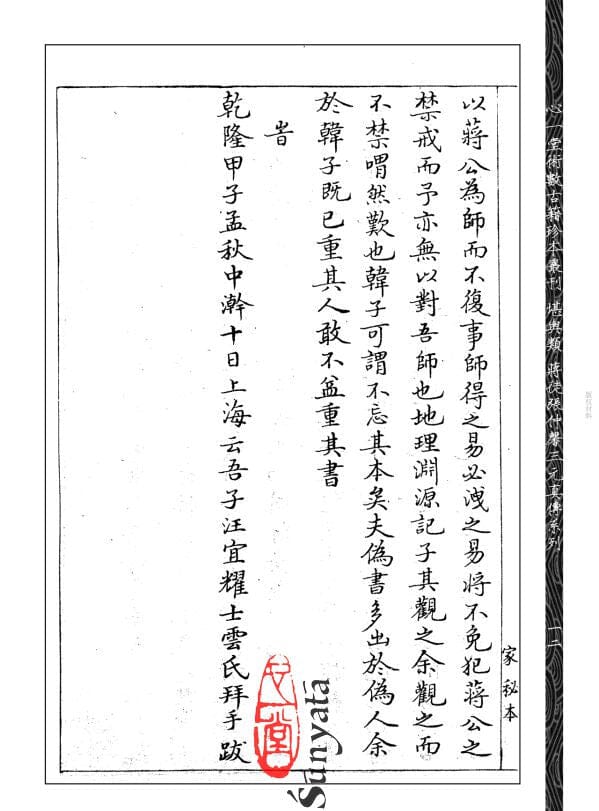 心一堂術數古籍珍本叢刊 堪輿類 蔣徒張仲馨三元真傳系列
一二
家秘本
以蔣公為師而不復事師得之易必洩之易將不免犯蔣公之
禁戒而予亦無以對吾師也地理淵源記子其觀之余觀之而
不禁喟然歎也韓子可謂不忘其本矣夫偽書多出於偽人余
於韓子既已重其人敢不益重其書
旹
乾隆甲子孟秋中澣十日上海云吾子汪宜耀士雲氏拜手跋
心一堂
Śūnyatā
版权材料